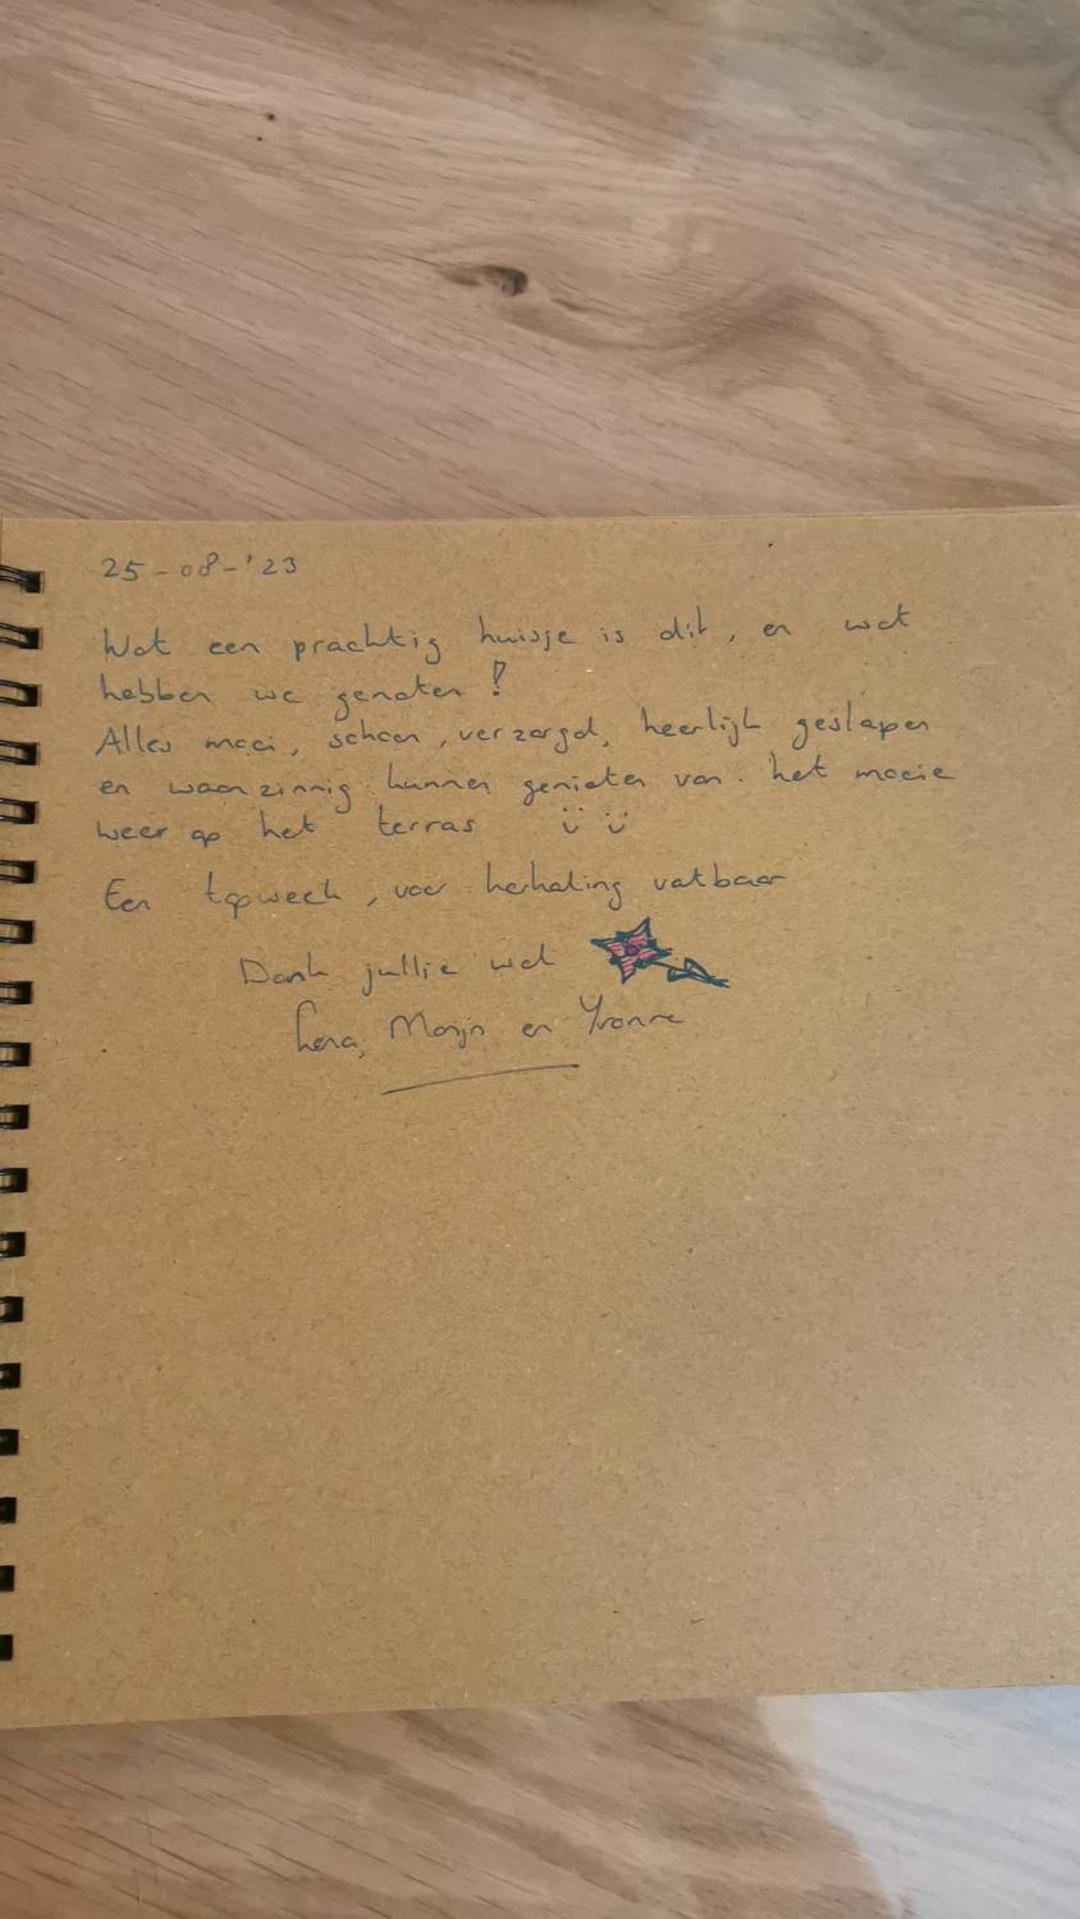 25-08-'23
Wat een prachtig huisje is dit, en wat
hebben we genoten!
Alles mooi, schoon, verzorgd, heerlijk geslapen
en waanzinnig kunnen genieten van het mooie
weer op het terras ü ü
Een topweek, voor herhaling vatbaar
Dank jullie wel
Lena, Marijn en Yvonne